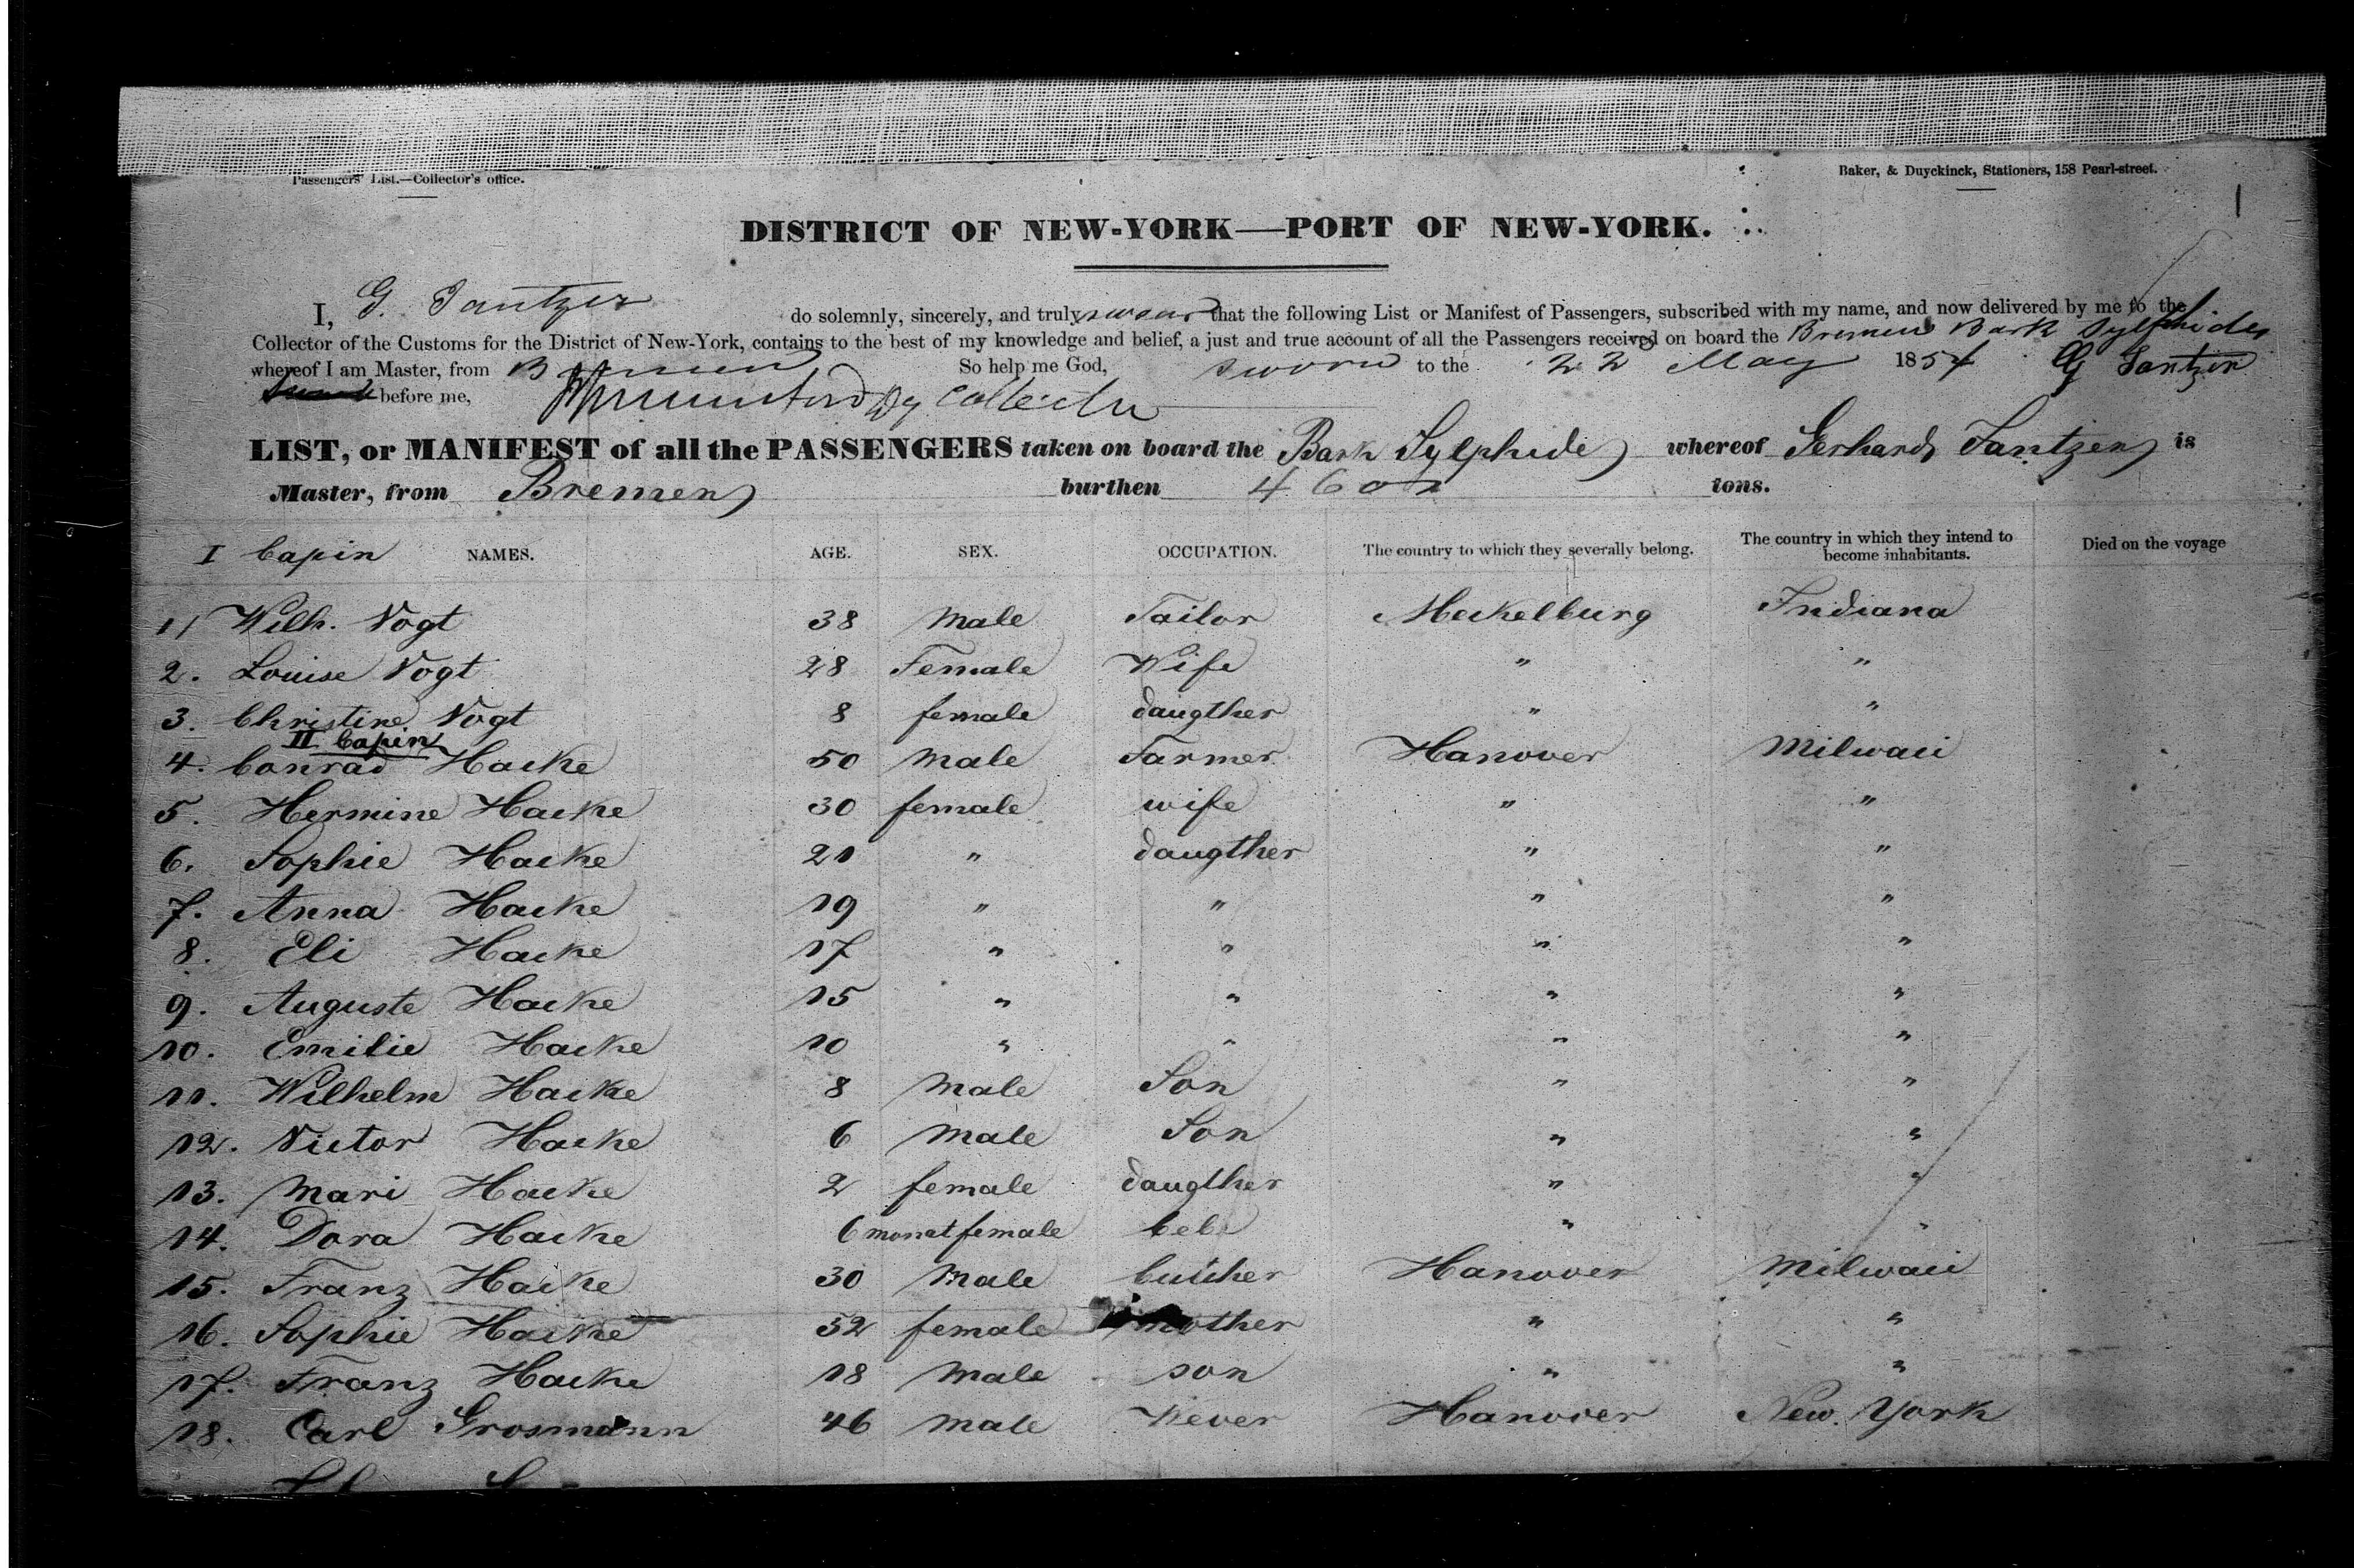 Passengers' List.—Collector's office.
Baker, & Duyckinck, Stationers, 158 Pearl-street.
1
DISTRICT OF NEW-YORK—PORT OF NEW-YORK.
I, G. Jantzen do solemnly, sincerely, and truly swear that the following List or Manifest of Passengers, subscribed with my name, and now delivered by me to the
Collector of the Customs for the District of New-York, contains to the best of my knowledge and belief, a just and true account of all the Passengers received on board the Bremen Bark Sylphides
whereof I am Master, from Bremen So help me God, sworn to the 22 May 1854 G Jantzen
before me, Collector
LIST, or MANIFEST of all the PASSENGERS taken on board the Bark Sylphide whereof Gerhard Jantzen is
Master, from Bremen burthen 460 tons.
I Capin NAMES. AGE. SEX. OCCUPATION. The country to which they severally belong. The country in which they intend to become inhabitants. Died on the voyage
1 Wilh. Vogt 38 Male Tailor Meckelburg Indiana
2. Louise Vogt 28 Female Wife " "
3. Christine Vogt 8 female daugther " "
II Capin
4. Conrad Hacke 50 Male Farmer Hanover Milwaii
5. Hermine Hacke 30 female wife " "
6. Sophie Hacke 21 " daugther " "
7. Anna Hacke 19 " " " "
8. Eli Hacke 17 " " " "
9. Auguste Hacke 15 " " " "
10. Emilie Hacke 10 " " " "
11. Wilhelm Hacke 8 Male Son " "
12. Victor Hacke 6 Male Son " "
13. Mari Hacke 2 female daugther " "
14. Dora Hacke 6 monat female beb " "
15. Franz Hacke 30 Male butcher Hanover Milwaii
16. Sophie Hacke 52 female mother " "
17. Franz Hacke 18 Male son " "
18. Carl Grosmann 46 Male Wever Hanover New. York